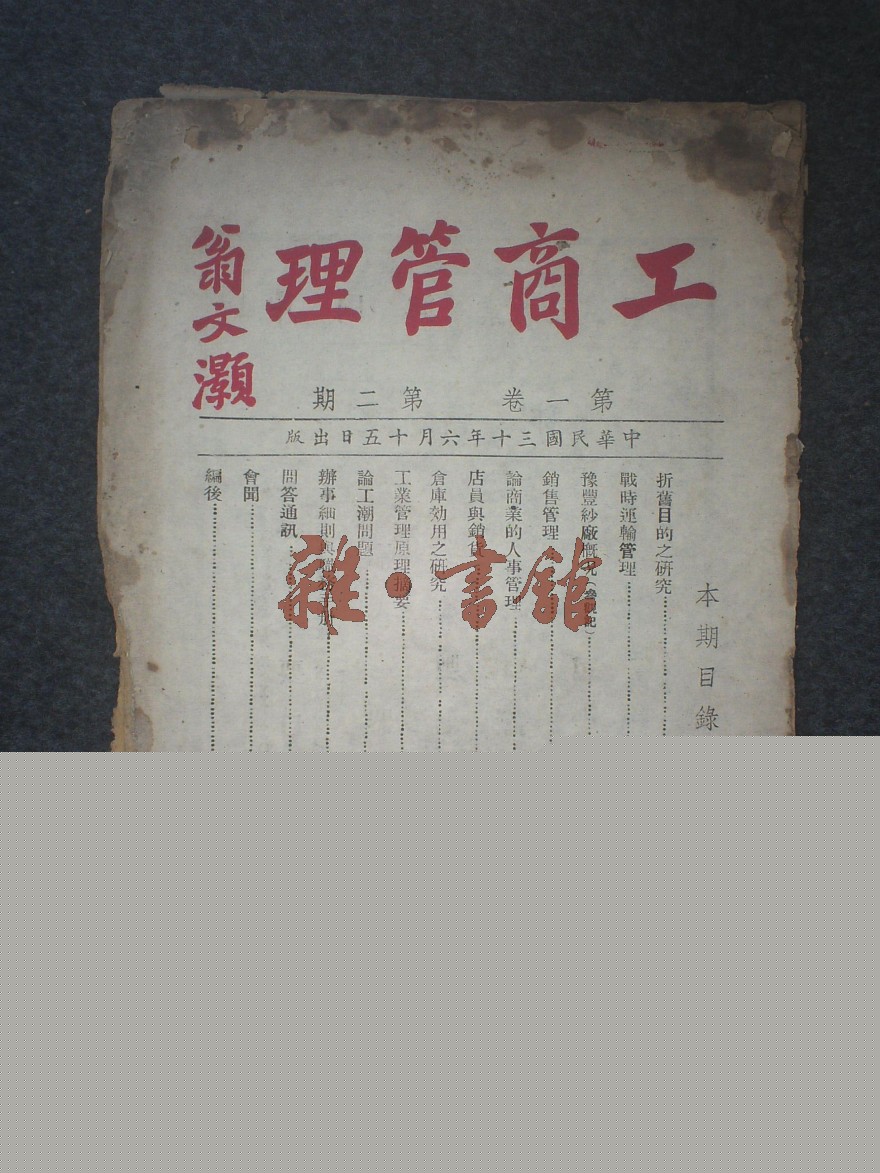 工商管理
翁文灝
第一卷 第二期
中華民國三十年六月十五日出版
本期目錄
折舊目的之研究
戰時運輸管理
豫豐紗廠概況
銷售管理
論商業的人事管理
店員與銷貨
倉庫効用之研究
工業管理原理摘要
論工潮問題
辦事細則與
問答通訊
會聞
編後
雜·書館